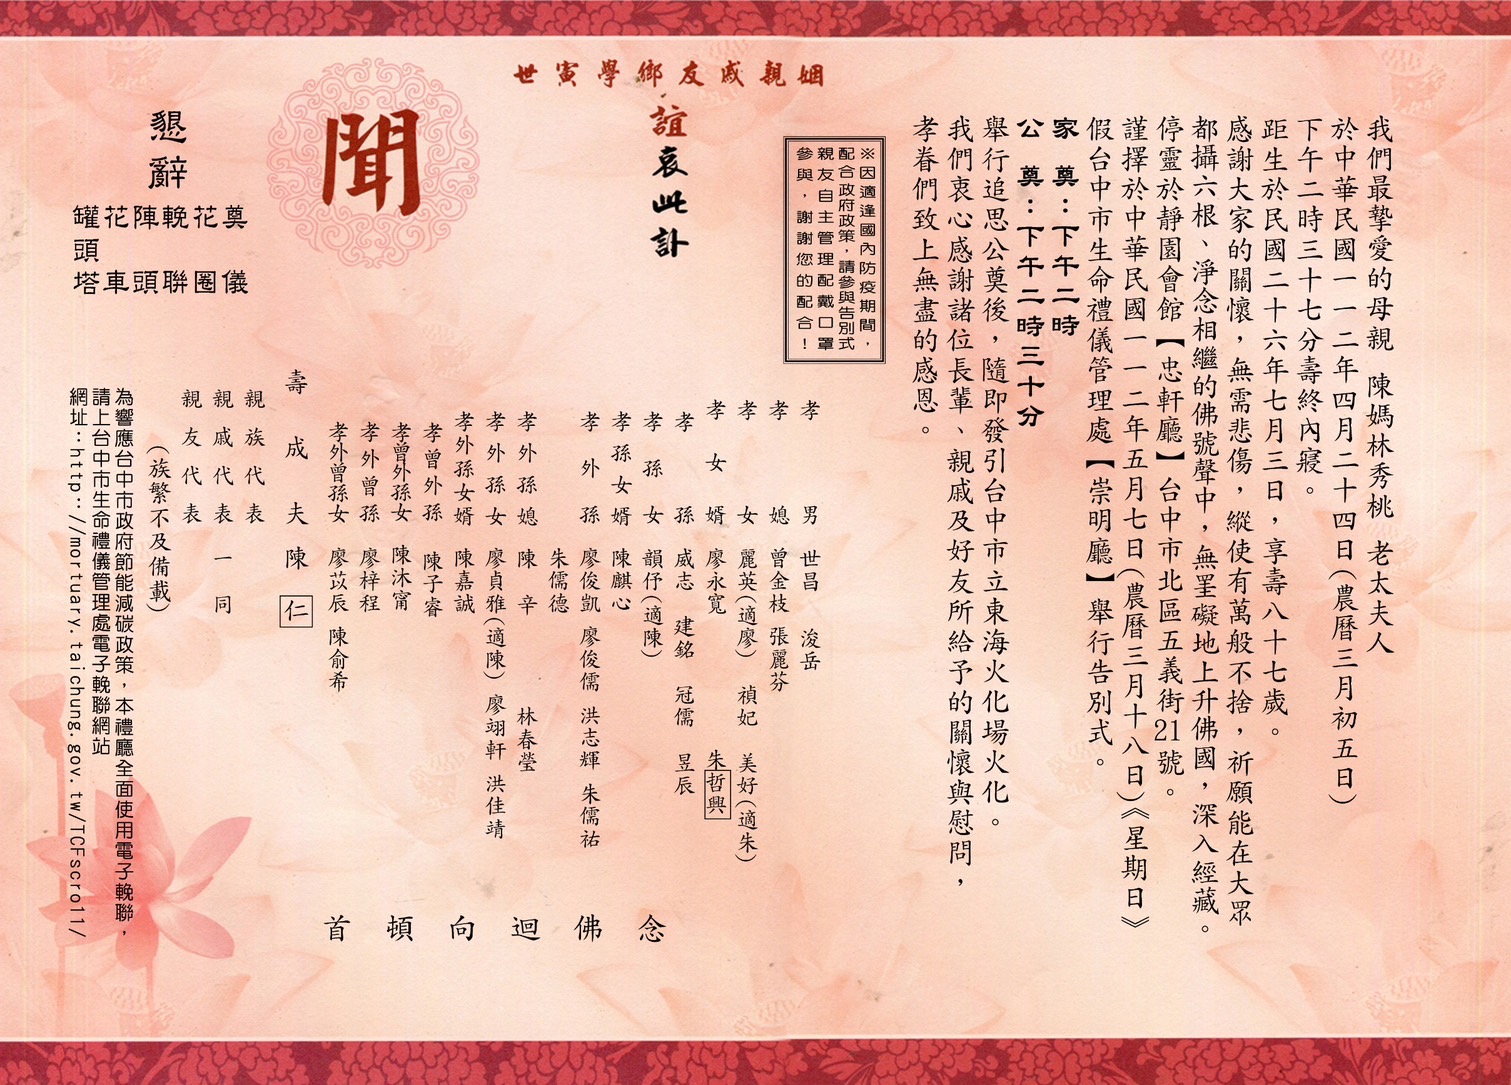 我們最摯愛的母親 陳媽林秀桃 老太夫人
於中華民國一一二年四月二十四日(農曆三月初五日)
下午二時三十七分壽終內寢。
距生於民國二十六年七月三日,享壽八十七歲。
感謝大家的關懷,無需悲傷,縱使有萬般不捨,祈願能在大眾
都攝六根、淨念相繼的佛號聲中,無罣礙地上升佛國,深入經藏。
停靈於靜園會館【忠軒廳】台中市北區五義街21號。
謹擇於中華民國一一二年五月七日(農曆三月十八日)《星期日》
假台中市生命禮儀管理處【崇明廳】舉行告別式。
家 奠:下午二時
公 奠:下午二時三十分
舉行追思公奠後,隨即發引台中市立東海火化場火化。
我們衷心感謝諸位長輩、親戚及好友所給予的關懷與慰問,
孝眷們致上無盡的感恩。
※因適逢國內防疫期間,
配合政府政策,請參與告別式
親友自主管理配戴口罩
參與,謝謝您的配合!
姻親戚友鄉學寅世
誼哀此訃
聞
孝男 世昌 浚岳
孝媳 曾金枝 張麗芬
孝女 麗英(適廖) 禎妃 美好(適朱)
孝女婿 廖永寬 朱哲興
孝孫 威志 建銘 冠儒 昱辰
孝孫女 韻伃(適陳)
孝孫女婿 陳麒心
孝外孫 廖俊凱 廖俊儒 洪志輝 朱儒祐
朱儒德
孝外孫媳 陳辛 林春瑩
孝外孫女 廖貞雅(適陳) 廖翊軒 洪佳靖
孝外孫女婿 陳嘉誠
孝曾外孫 陳子睿
孝曾外孫女 陳沐甯
孝外曾孫 廖梓程
孝外曾孫女 廖苡辰 陳俞希
壽成夫 陳仁
親族代表
親戚代表 一同
親友代表
(族繁不及備載)
念佛迴向頓首
懇辭
奠花輓陣花罐
頭
儀圈聯頭車塔
為響應台中市政府節能減碳政策,本禮廳全面使用電子輓聯,
請上台中市生命禮儀管理處電子輓聯網站
網址:http://mortuary.taichung.gov.tw/TCFscroll/